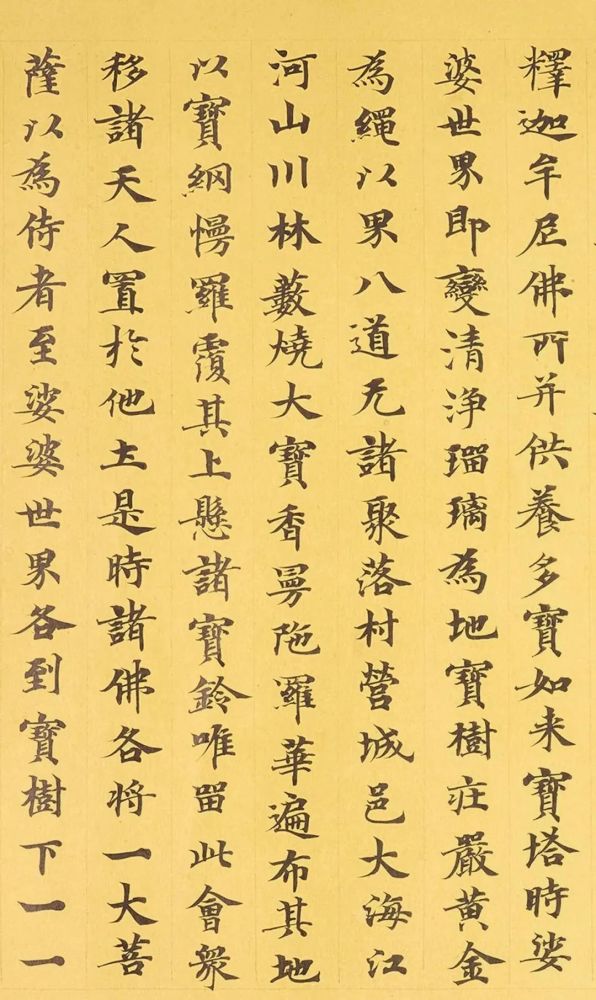 釋迦牟尼佛所并供養多寶如来寶塔時娑
婆世界即變清淨瑠璃為地寶樹莊嚴黄金
為繩以界八道无諸聚落村營城邑大海江
河山川林藪燒大寶香曼陁羅華遍布其地
以寶網幔羅覆其上懸諸寶鈴唯留此會衆
移諸天人置於他土是時諸佛各将一大菩
薩以為侍者至娑婆世界各到寶樹下一一